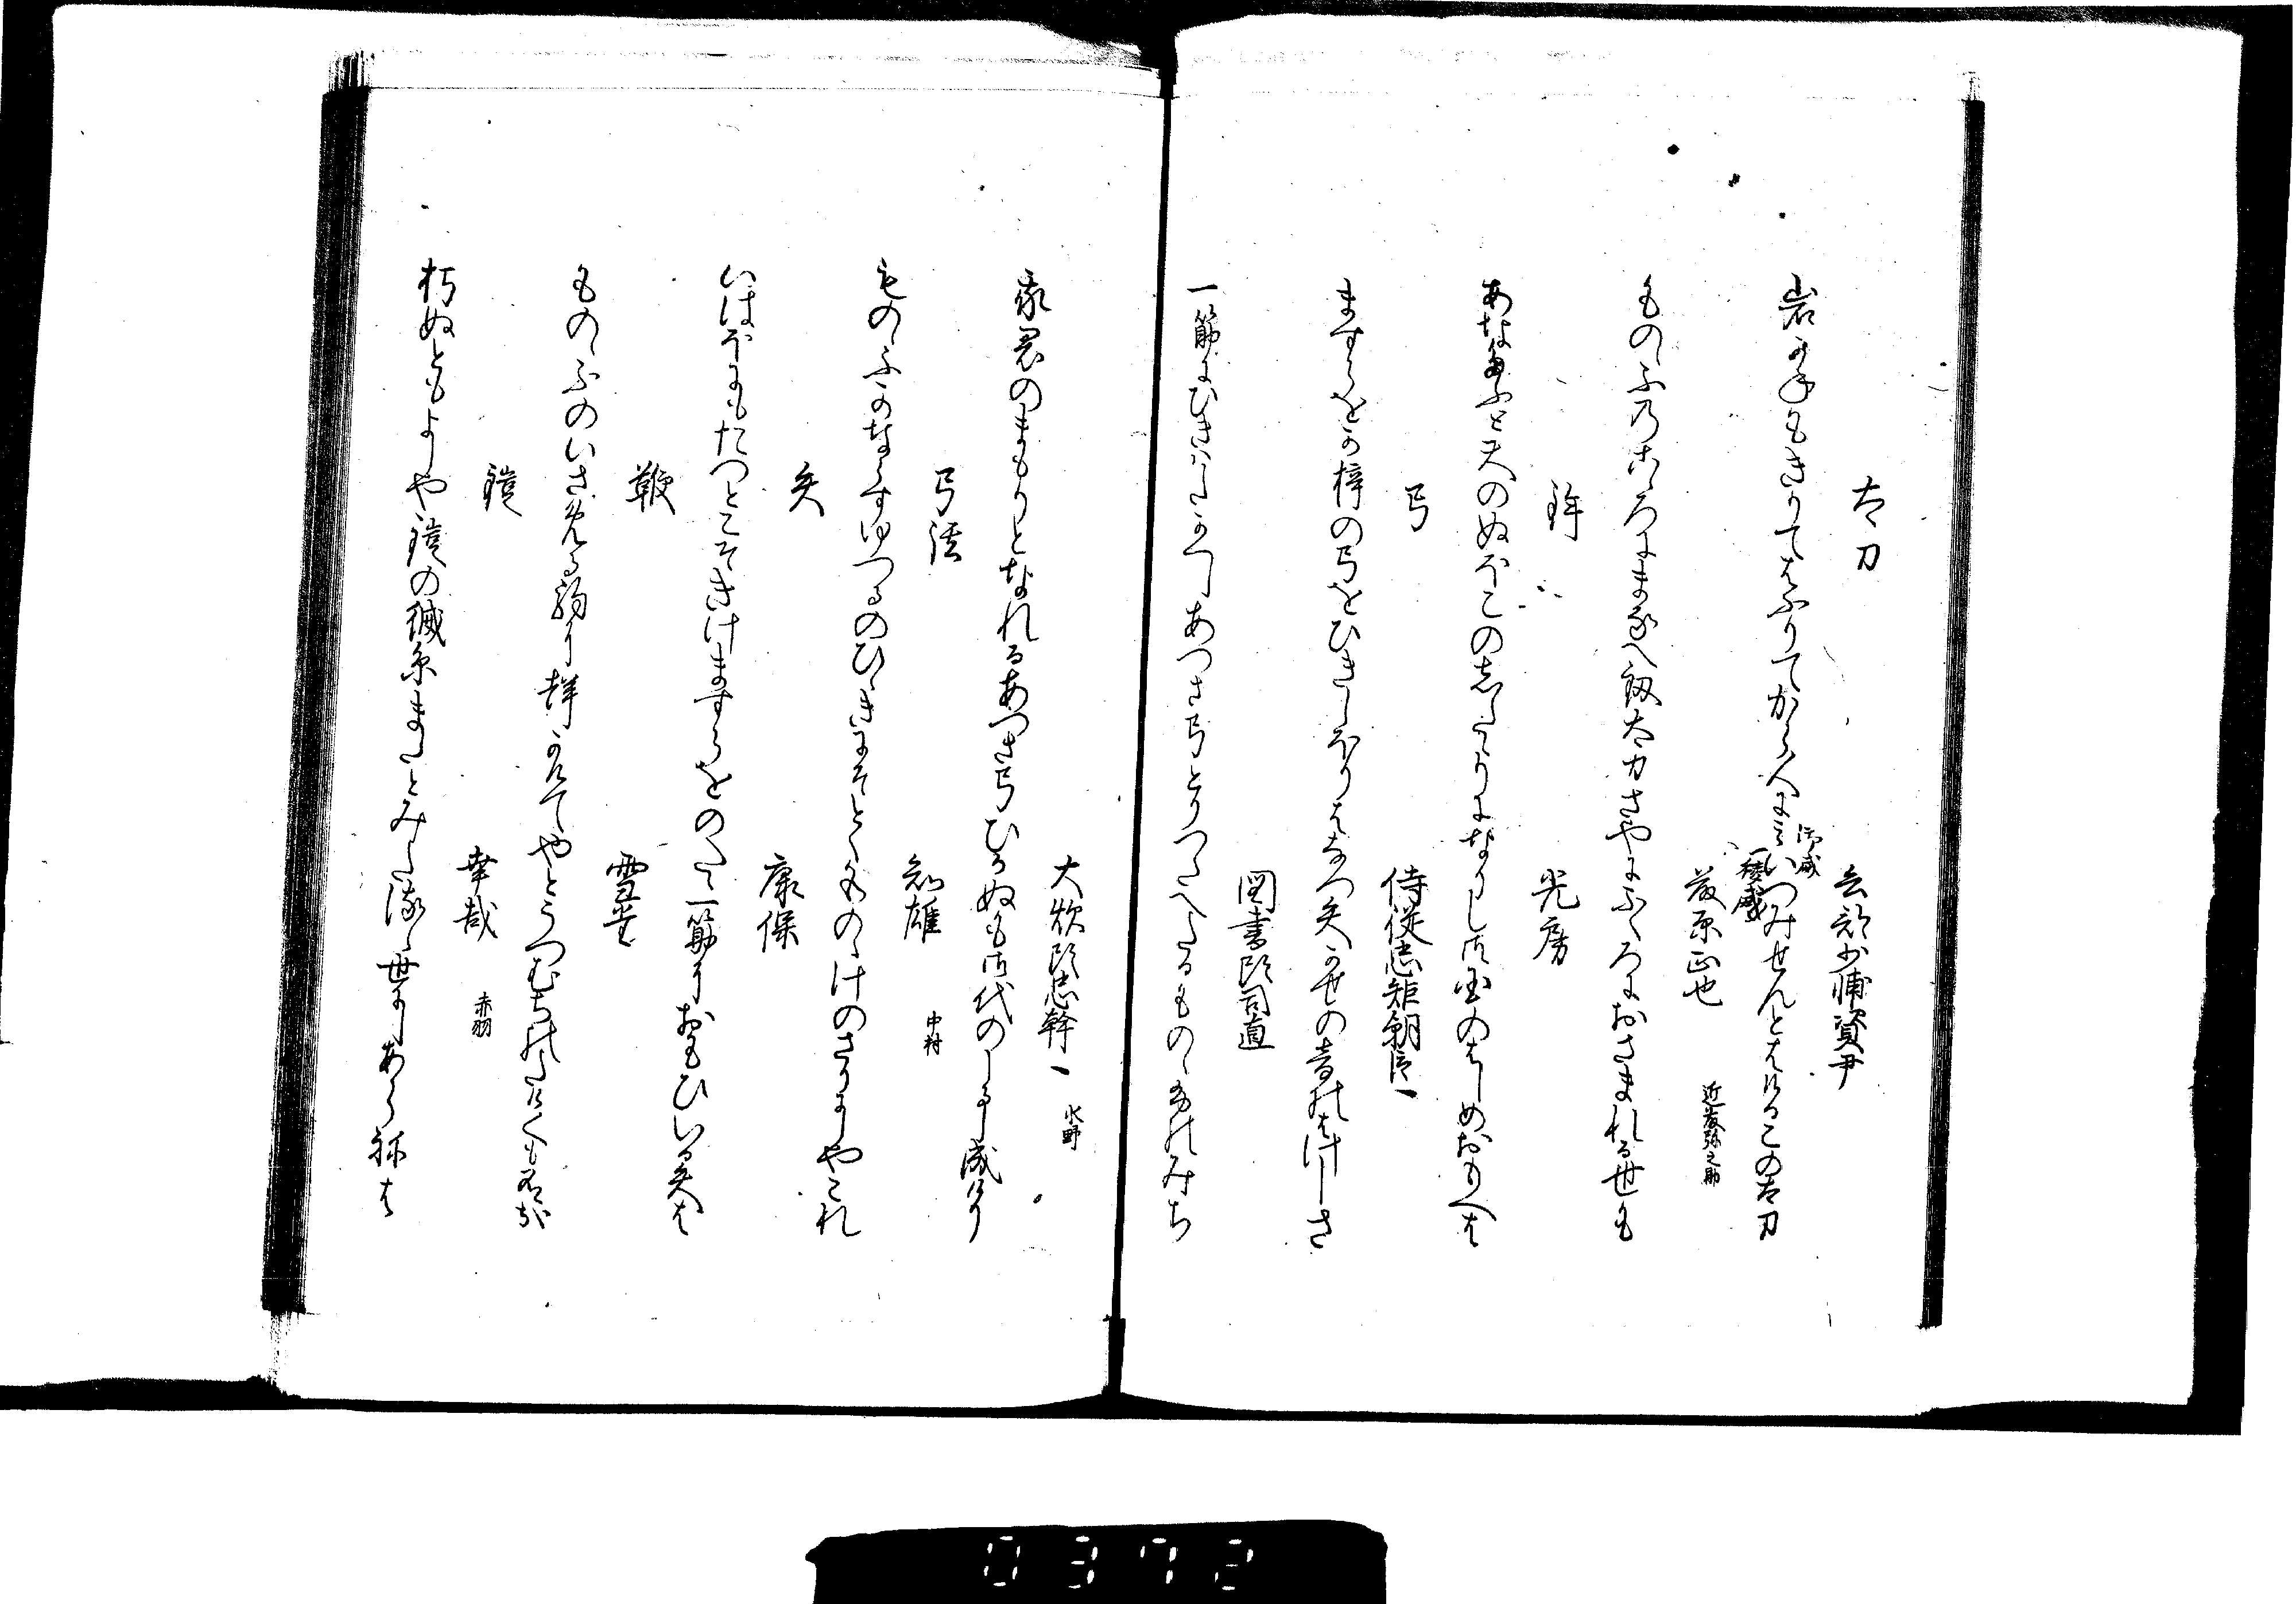 太刀
兵部少輔資尹
岩かねもきりてはふりてから人に
みいつみせんとはけるこの太刀
藤原正也 近藤弥之助
ものゝふ乃こゝろにまそへ釼太刀さやにふくろにおさまれる世も
鉾
光房
あなたふと天のぬほこのしたゝりになりし御国のはしめおもへは
弓
侍従忠矩朝臣
ますらをか梓の弓をひきしほりはなつ矢かせの音のはけしさ
図書頭司直
一筋にひきはたかへしあつさ弓とりつたへたるものゝふのみち
大炊頭忠幹 水野
家君のまもりとなれるあつさ弓ひかぬも御代のしるし成けり
弓弦
知雄 中村
ものゝふのならすゆつるのひゝきにそとくものゝけのさりにしやこれ
矢
康保
いはほにもたつとこそきけますらをのたゝ一筋におもひいる矢は
鞭
雪堂
ものゝふのいさめる駒に
鎧
幸哉 赤羽
朽ぬともよしや鎧の縅糸またとみたるゝ世にしあらねは
0372